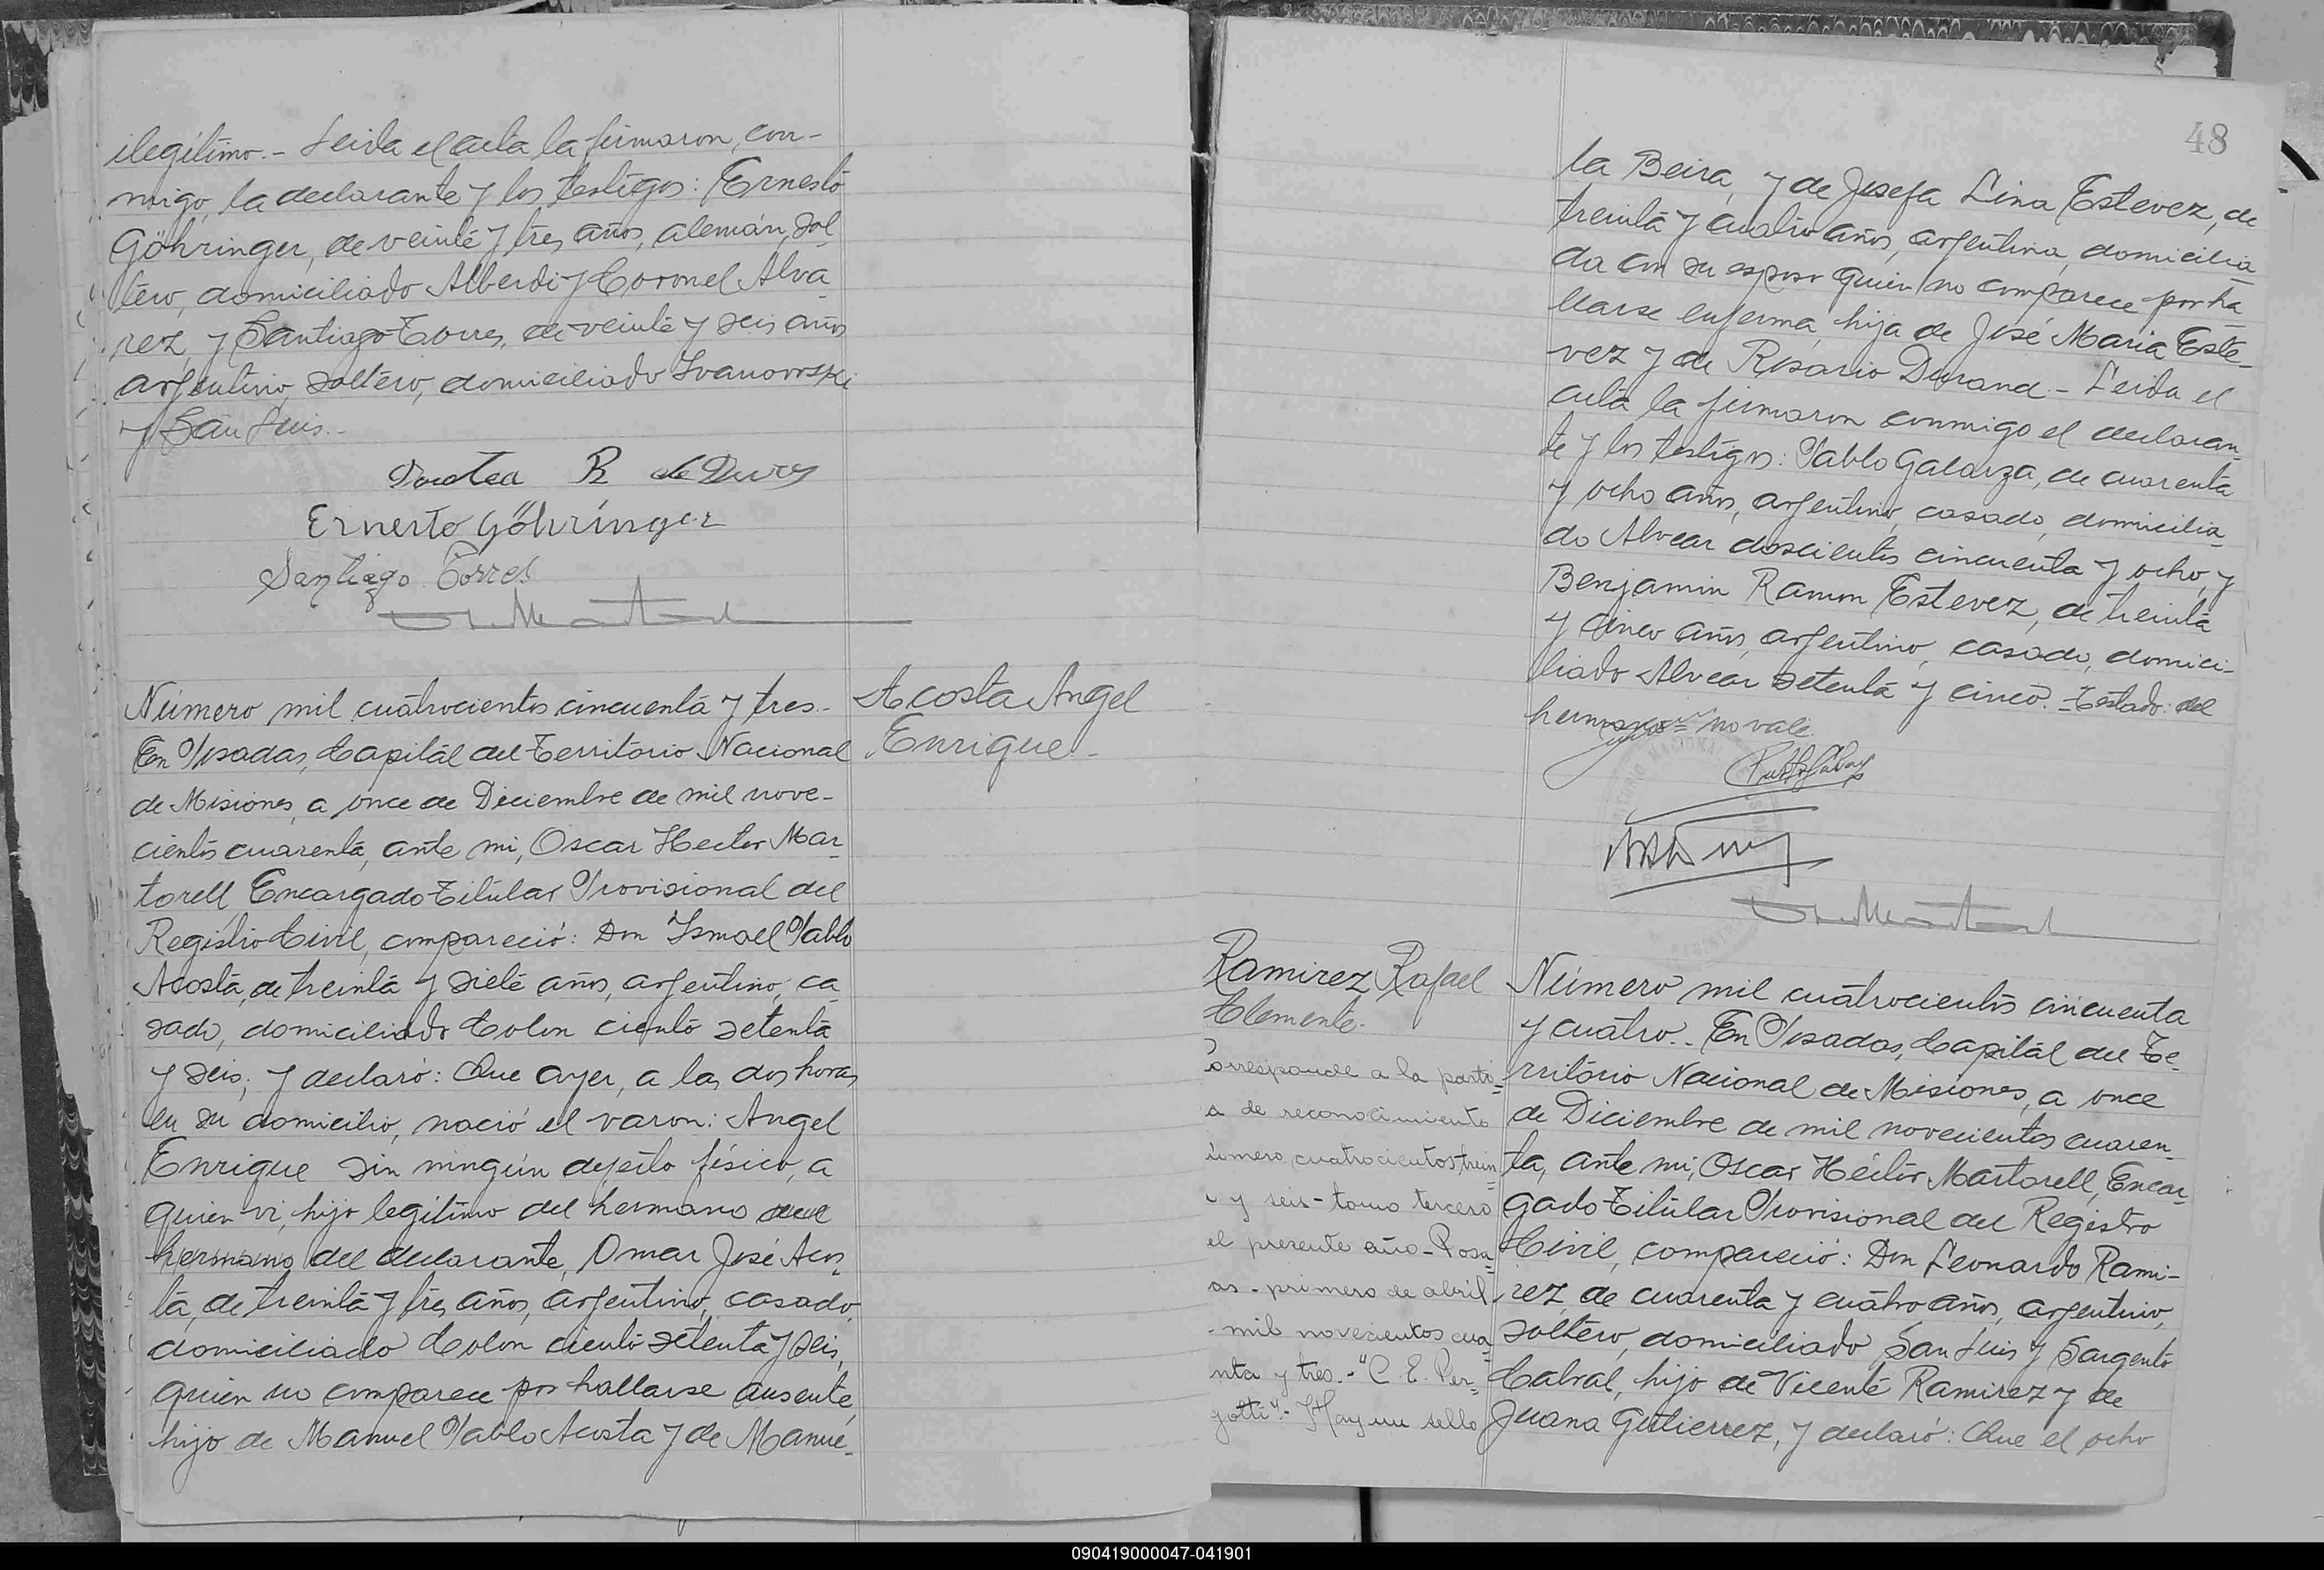 ilegítimo.- Leida el acta la firmaron, con-
migo, la declarante y los testigos: Ernesto
Göhringer, de veinte y tres años, alemán, sol-
tero, domiciliado Alberdi y Coronel Alva-
rez, y Santiago Torres, de veinte y seis años
argentino, soltero, domiciliado Ivanowski
y San Luis.-
R de
Ernesto Göhringer
Santiago Torres
Número mil cuatrocientos cincuenta y tres.-
En Posadas, Capital del Territorio Nacional
de Misiones, a once de Diciembre de mil nove-
cientos cuarenta, ante mi, Oscar Hector Mar-
torell, Encargado Titular Provisional del
Registro Civil, compareció: Don Ismael Pablo
Acosta, de treinta y siete años, argentino, ca-
sado, domiciliado Colon ciento setenta
y seis; y declaró: Que ayer, a las dos horas
en su domicilio, nació el varon: Angel
Enrique sin ningún defecto físico, a
quien vi, hijo legítimo del hermano del
hermano del declarante, Omar José Acos-
ta, de treinta y tres años, argentino, casado,
domiciliado Colon ciento setenta y seis,
quien no comparece por hallarse ausente,
hijo de Manuel Pablo Acosta y de Manue-
Acosta Angel
Enrique.-
48
la Beira, y de Josefa Lina Estevez, de
treinta y cuatro años, argentina, domicilia-
da con su esposo quien no comparece por ha-
llarse enferma, hija de José Maria Este-
vez y de Rosario Durand.- Leida el
acta la firmaron conmigo el declaran-
te y los testigos: Pablo Galarza, de cuarenta
y ocho años, argentino, casado, domicilia-
do Alvear doscientos cincuenta y ocho, y
Benjamin Ramon Estevez, de treinta
y cinco años, argentino, casado, domici-
liado Alvear setenta y cinco.- Testado: del
hermano no vale.
Ramirez Rafael
Clemente.-
Corresponde a la parti-
a de reconocimiento
úmero cuatrocientos trein-
a y seis - tomo tercero
el presente año - Posa-
as - primero de abril
mil novecientos cua-
nta y tres.- "C. E. Per-
gotti".- Hay un sello
Número mil cuatrocientos cincuenta
y cuatro.- En Posadas, Capital del Te-
rritorio Nacional de Misiones, a once
de Diciembre de mil novecientos cuaren-
ta, ante mi, Oscar Héctor Martorell, Encar-
gado Titular Provisional del Registro
Civil, compareció: Don Leonardo Rami-
rez, de cuarenta y cuatro años, argentino,
soltero, domiciliado San Luis y Sargento
Cabral, hijo de Vicente Ramirez y de
Juana Gutierrez, y declaró: Que el ocho
090419000047-041901